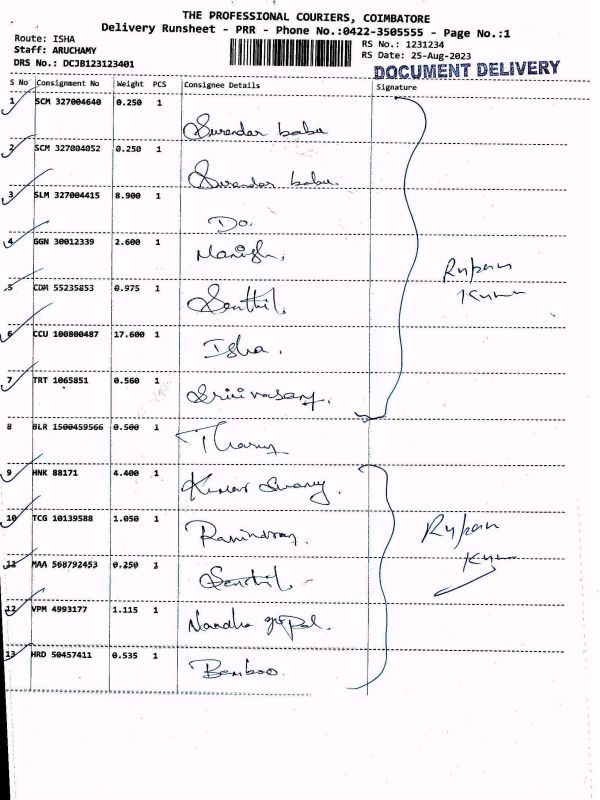 THE PROFESSIONAL COURIERS, COIMBATORE
Delivery Runsheet - PRR - Phone No.:0422-3505555 - Page No.:1
Route: ISHA
Staff: ARUCHAMY
DRS No.: DCJB123123401
RS No.: 1231234
RS Date: 25-Aug-2023
DOCUMENT DELIVERY
S No Consignment No Weight PCS Consignee Details Signature
1 SCM 327004640 0.250 1 Surendar babu
2 SCM 327004052 0.250 1 Surendar babu.
3 SLM 327004415 8.900 1 Do.
4 GGN 30012339 2.600 1 Manish,
5 CDM 55235853 0.975 1 Senthil. Rupan
6 CCU 100800487 17.600 1 Isha.
7 TRT 1065851 0.560 1 Srinivasan.
8 BLR 1500459566 0.500 1 Tharun
9 HNK 88171 4.400 1 Kumar Swamy.
10 TCG 10139588 1.050 1 Ravindran. Rupan
11 MAA 568792453 0.250 1 Senthil.
12 VPM 4993177 1.115 1 Nandha gopal.
13 HRD 50457411 0.535 1 Bamboo.